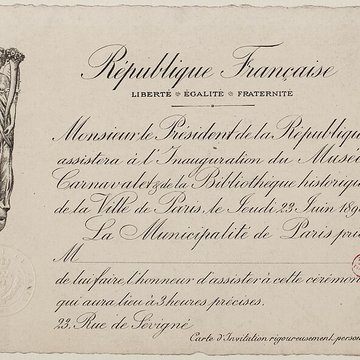 République Française
LIBERTÉ * ÉGALITÉ * FRATERNITÉ
Monsieur le Président de la République
assistera à l'Inauguration du Musée
Carnavalet & de la Bibliothèque historiq
de la Ville de Paris, le Jeudi 23 Juin 189
La Municipalité de Paris pri
M
de lui faire l'honneur d'assister à cette cérémon
qui aura lieu à 3 heures précises.
23, Rue de Sévigné
Carte d'Invitation rigoureusement person